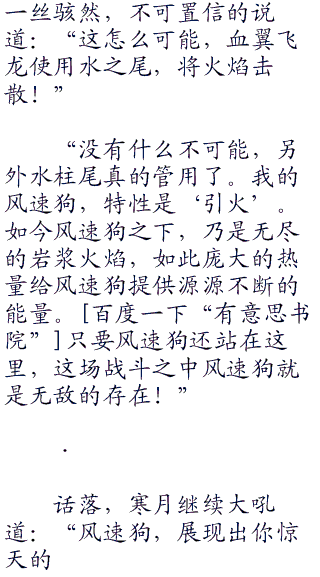 一丝骇然，不可置信的说
道：“这怎么可能，血翼飞
龙使用水之尾，将火焰击
散！”
“没有什么不可能，另
外水柱尾真的管用了。我的
风速狗，特性是‘引火’。
如今风速狗之下，乃是无尽
的岩浆火焰，如此庞大的热
量给风速狗提供源源不断的
能量。[百度一下“有意思书
院”]只要风速狗还站在这
里，这场战斗之中风速狗就
是无敌的存在！”
.
话落，寒月继续大吼
道：“风速狗，展现出你惊
天的